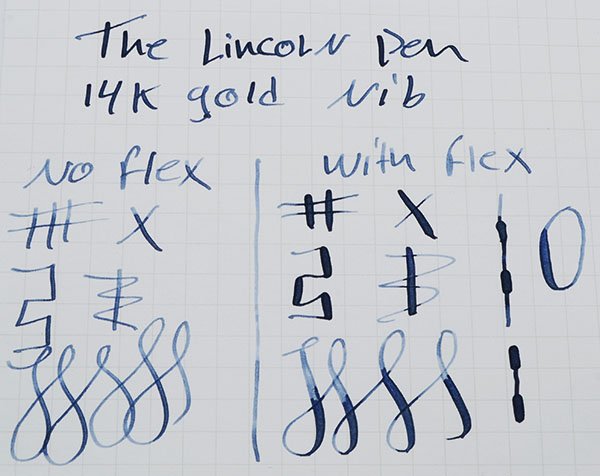 The Lincoln Pen
14K gold Nib
No flex
with flex